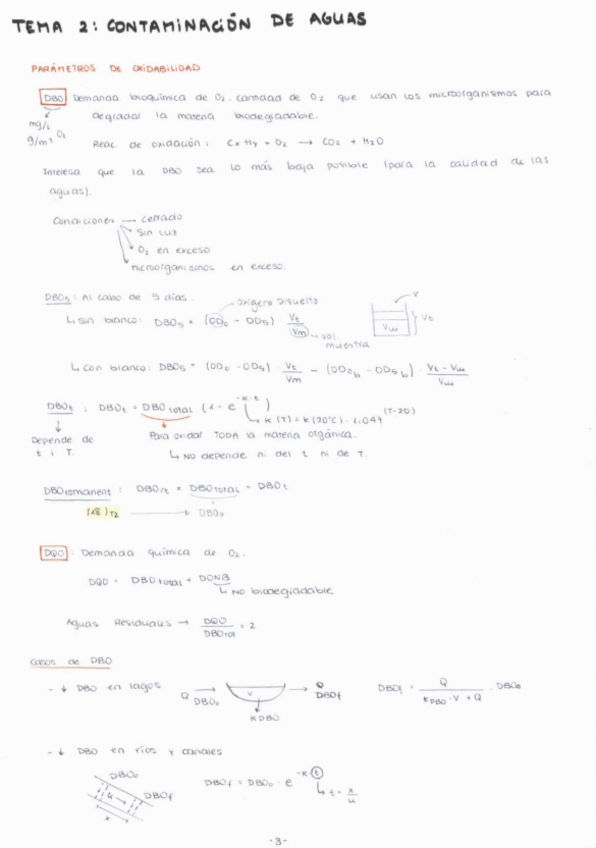 TEMA 2: CONTAMINACIÓN DE AGUAS
PARÁMETROS DE OXIDABILIDAD
DBO Demanda bioquímica de O2. cantidad de O2 que usan los microorganismos para
degradar la materia biodegradable.
mg/L
g/m³ O2
Reac. de oxidación: CxHy + O2 → CO2 + H2O
Interesa que la DBO sea lo más baja posible (para la calidad de las
aguas).
Condiciones → cerrado
Sin luz
O2 en exceso
microorganismos en exceso.
DBO5: Al cabo de 5 días.
oxígeno disuelto
↳ sin blanco: DBO5 = (OD0 - OD5) Vt/Vm
vol. muestra
V
Vt
Vm
↳ Con blanco: DBO5 = (OD0 - OD5) · Vt/Vm - (OD0b - OD5b) · Vt - Vm/Vm
DBOt : DBOt = DBO total (1 - e^-k·t)
↳ k(T) = k(20°C) · 1.047^(T-20)
Depende de t i T.
Para oxidar TODA la materia orgánica.
↳ NO depende ni del t ni de T.
DBOromanent : DBOrt = DBOtotal - DBOt
(18)T2 → DBO0
DQO : Demanda química de O2.
DQO = DBO total + DONB
↳ NO biodegradable
Aguas Residuales → DQO/DBOtot = 2
Casos de DBO
- ↓ DBO en lagos
Q
DBO0
V
K DBO
Q
DBOf
DBOf = Q/(KDBO · V + Q) · DBO0
- ↓ DBO en ríos y canales
DBO0
u →
DBOf
x
DBOf = DBO0 · e^-k·t
↳ t = x/u
-3-